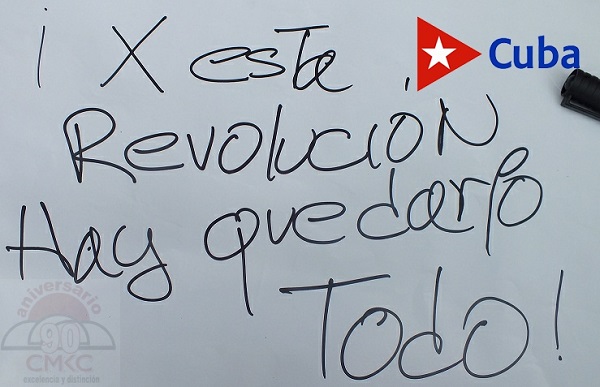 ¡ X esta
Cuba
Revolución
Hay que darlo
Todo!
aniversario
90
CMKC
excelencia y distinción